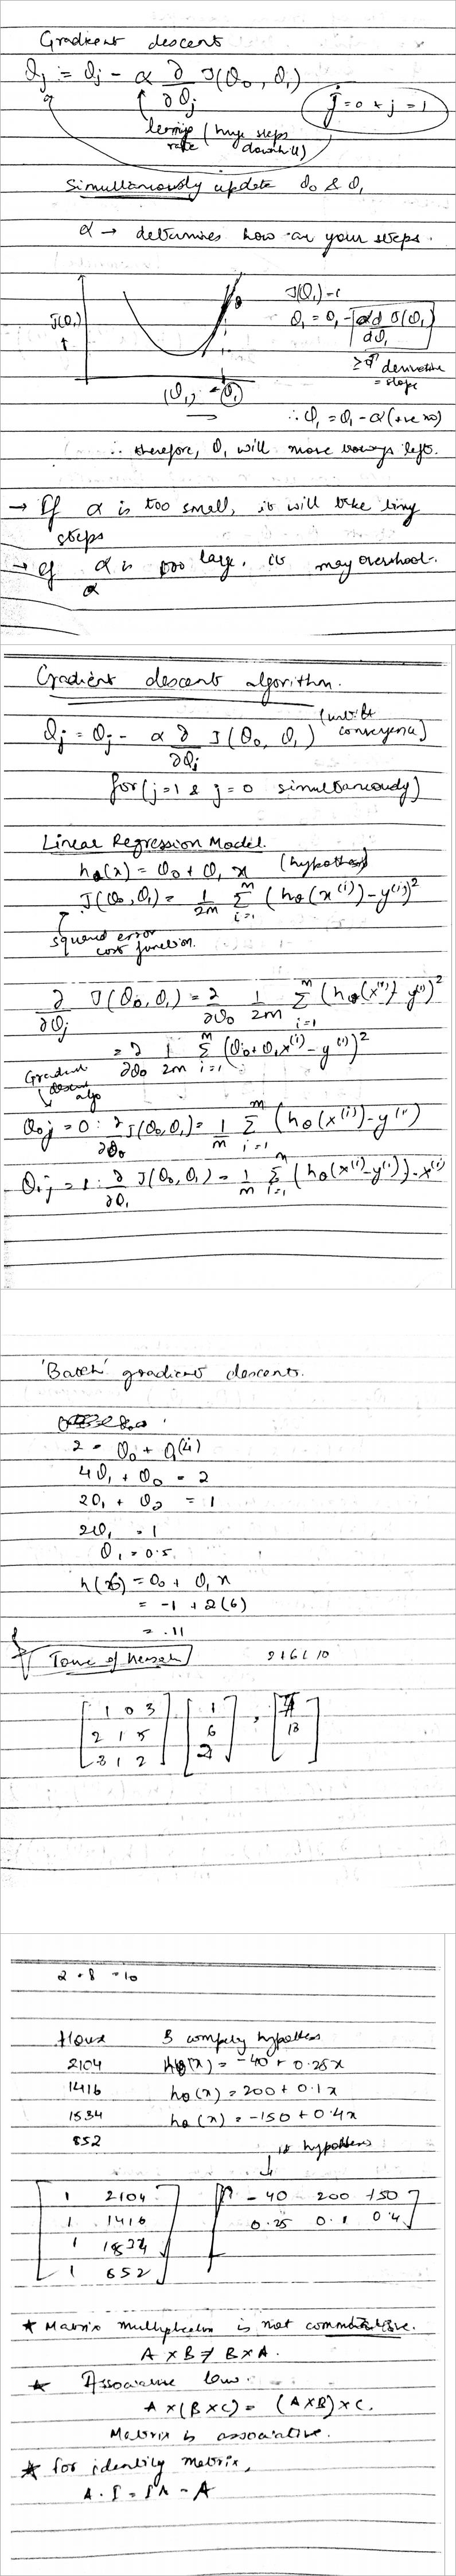 Gradient descent
θj := θj - α ∂/∂θj J(θ0, θ1)
j=0 & j=1
learning rate (huge steps downhill)
Simultaneously update θ0 & θ1
α → determines how are your steps.
J(θ1)
θ1 = θ1 - α d/dθ1 J(θ1)
≥0 derivative = slope
J(θ1) ↑
(θ1) → θ1
∴ θ1 = θ1 - α (+ve no)
∴ therefore, θ1 will move towards left.
→ If α is too small, it will take tiny
steps
→ if α is too large, it may overshoot.
α
Gradient descent algorithm.
θj = θj - α ∂/∂θj J(θ0, θ1) (until convergence)
for (j=1 & j=0 simultaneously)
Linear Regression Model.
hθ(x) = θ0 + θ1 x (hypothesis)
J(θ0, θ1) = 1/2m Σ i=1 m (hθ(x(i)) - y(i))²
squared error cost function.
∂/∂θj J(θ0, θ1) = ∂/∂θ0 1/2m Σ i=1 m (hθ(x(i)) - y(i))²
= ∂/∂θ0 1/2m Σ i=1 m (θ0 + θ1 x(i) - y(i))²
Gradient descent algo
θ0 j = 0 : ∂/∂θ0 J(θ0, θ1) = 1/m Σ i=1 m (hθ(x(i)) - y(i)
θ1 j = 1 : ∂/∂θ1 J(θ0, θ1) = 1/m Σ i=1 m (hθ(x(i) - y(i)) . x(i)
'Batch' gradient descent.
2 = θ0 + θ1(4)
4θ1 + θ0 = 2
2θ1 + θ0 = 1
2θ1 = 1
θ1 = 0.5
h(x) = θ0 + θ1 x
= -1 + 2(6)
= 11
1 0 3
2 1 5
3 1 2
1
6
2
7
18
2 + 8 = 10
House 3 company hypothesis
2104 hθ(x) = -40 + 0.25x
1416 hθ(x) = 200 + 0.1x
1534 hθ(x) = -150 + 0.4x
852
1st hypothesis
1 2104
1 1416
1 1534
1 852
-40 200 -150
0.25 0.1 0.4
* Matrix multiplication is not commutative.
A × B ≠ B × A.
* Associative law.
A × (B × C) = (A × B) × C.
Matrix is associative.
* for identity matrix,
A . I = IA = A